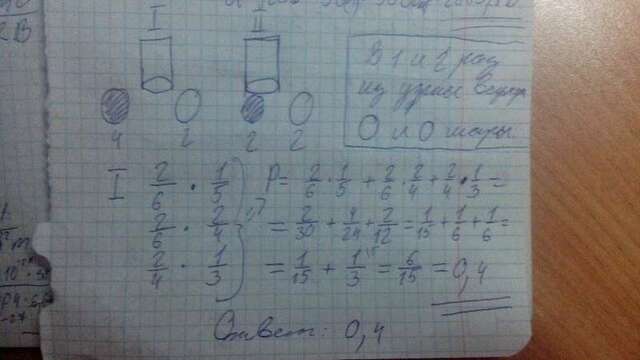 I II
В 1 и 2 раз
из урны
О и О шары
4 2 2 2
I 2/6 · 1/5
2/6 · 2/4
2/4 · 1/3
P = 2/6 · 1/5 + 2/6 · 2/4 + 2/4 · 1/3 =
= 2/30 + 4/24 + 2/12 = 1/15 + 1/6 + 1/6 =
= 1/15 + 1/3 = 6/15 = 0,4
Ответ: 0,4